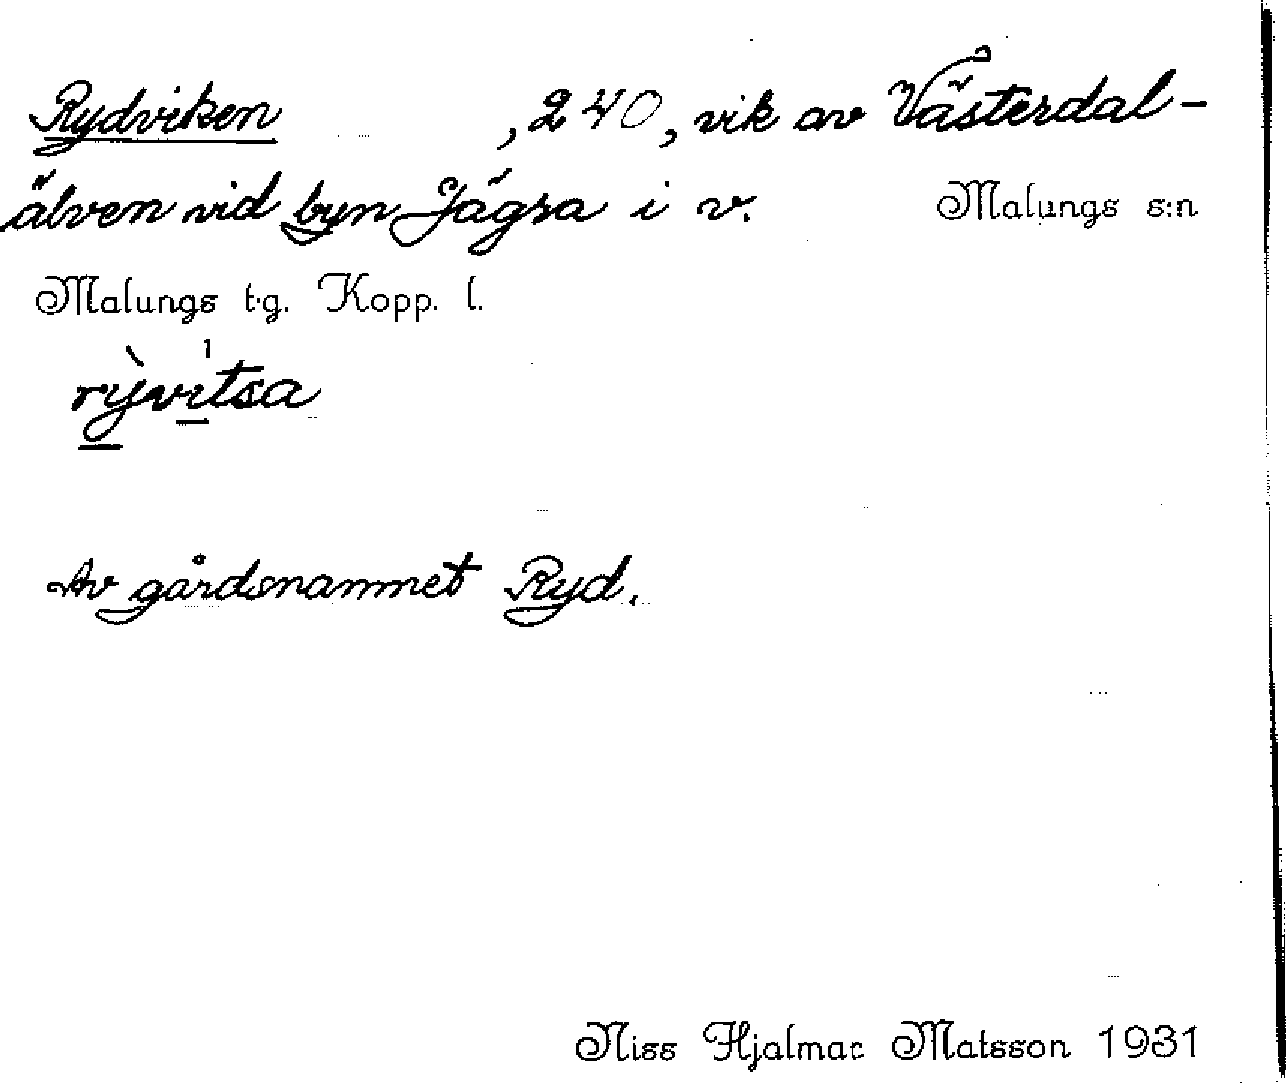 Rydviken , 240, vik av Västerdal-
älven vid byn Jägra i v. Malungs s:n
Malungs t.g. Kopp. l.
rỳvi̍tsa
Av gårdsnamnet Ryd.
Niss Hjalmar Matsson 1931